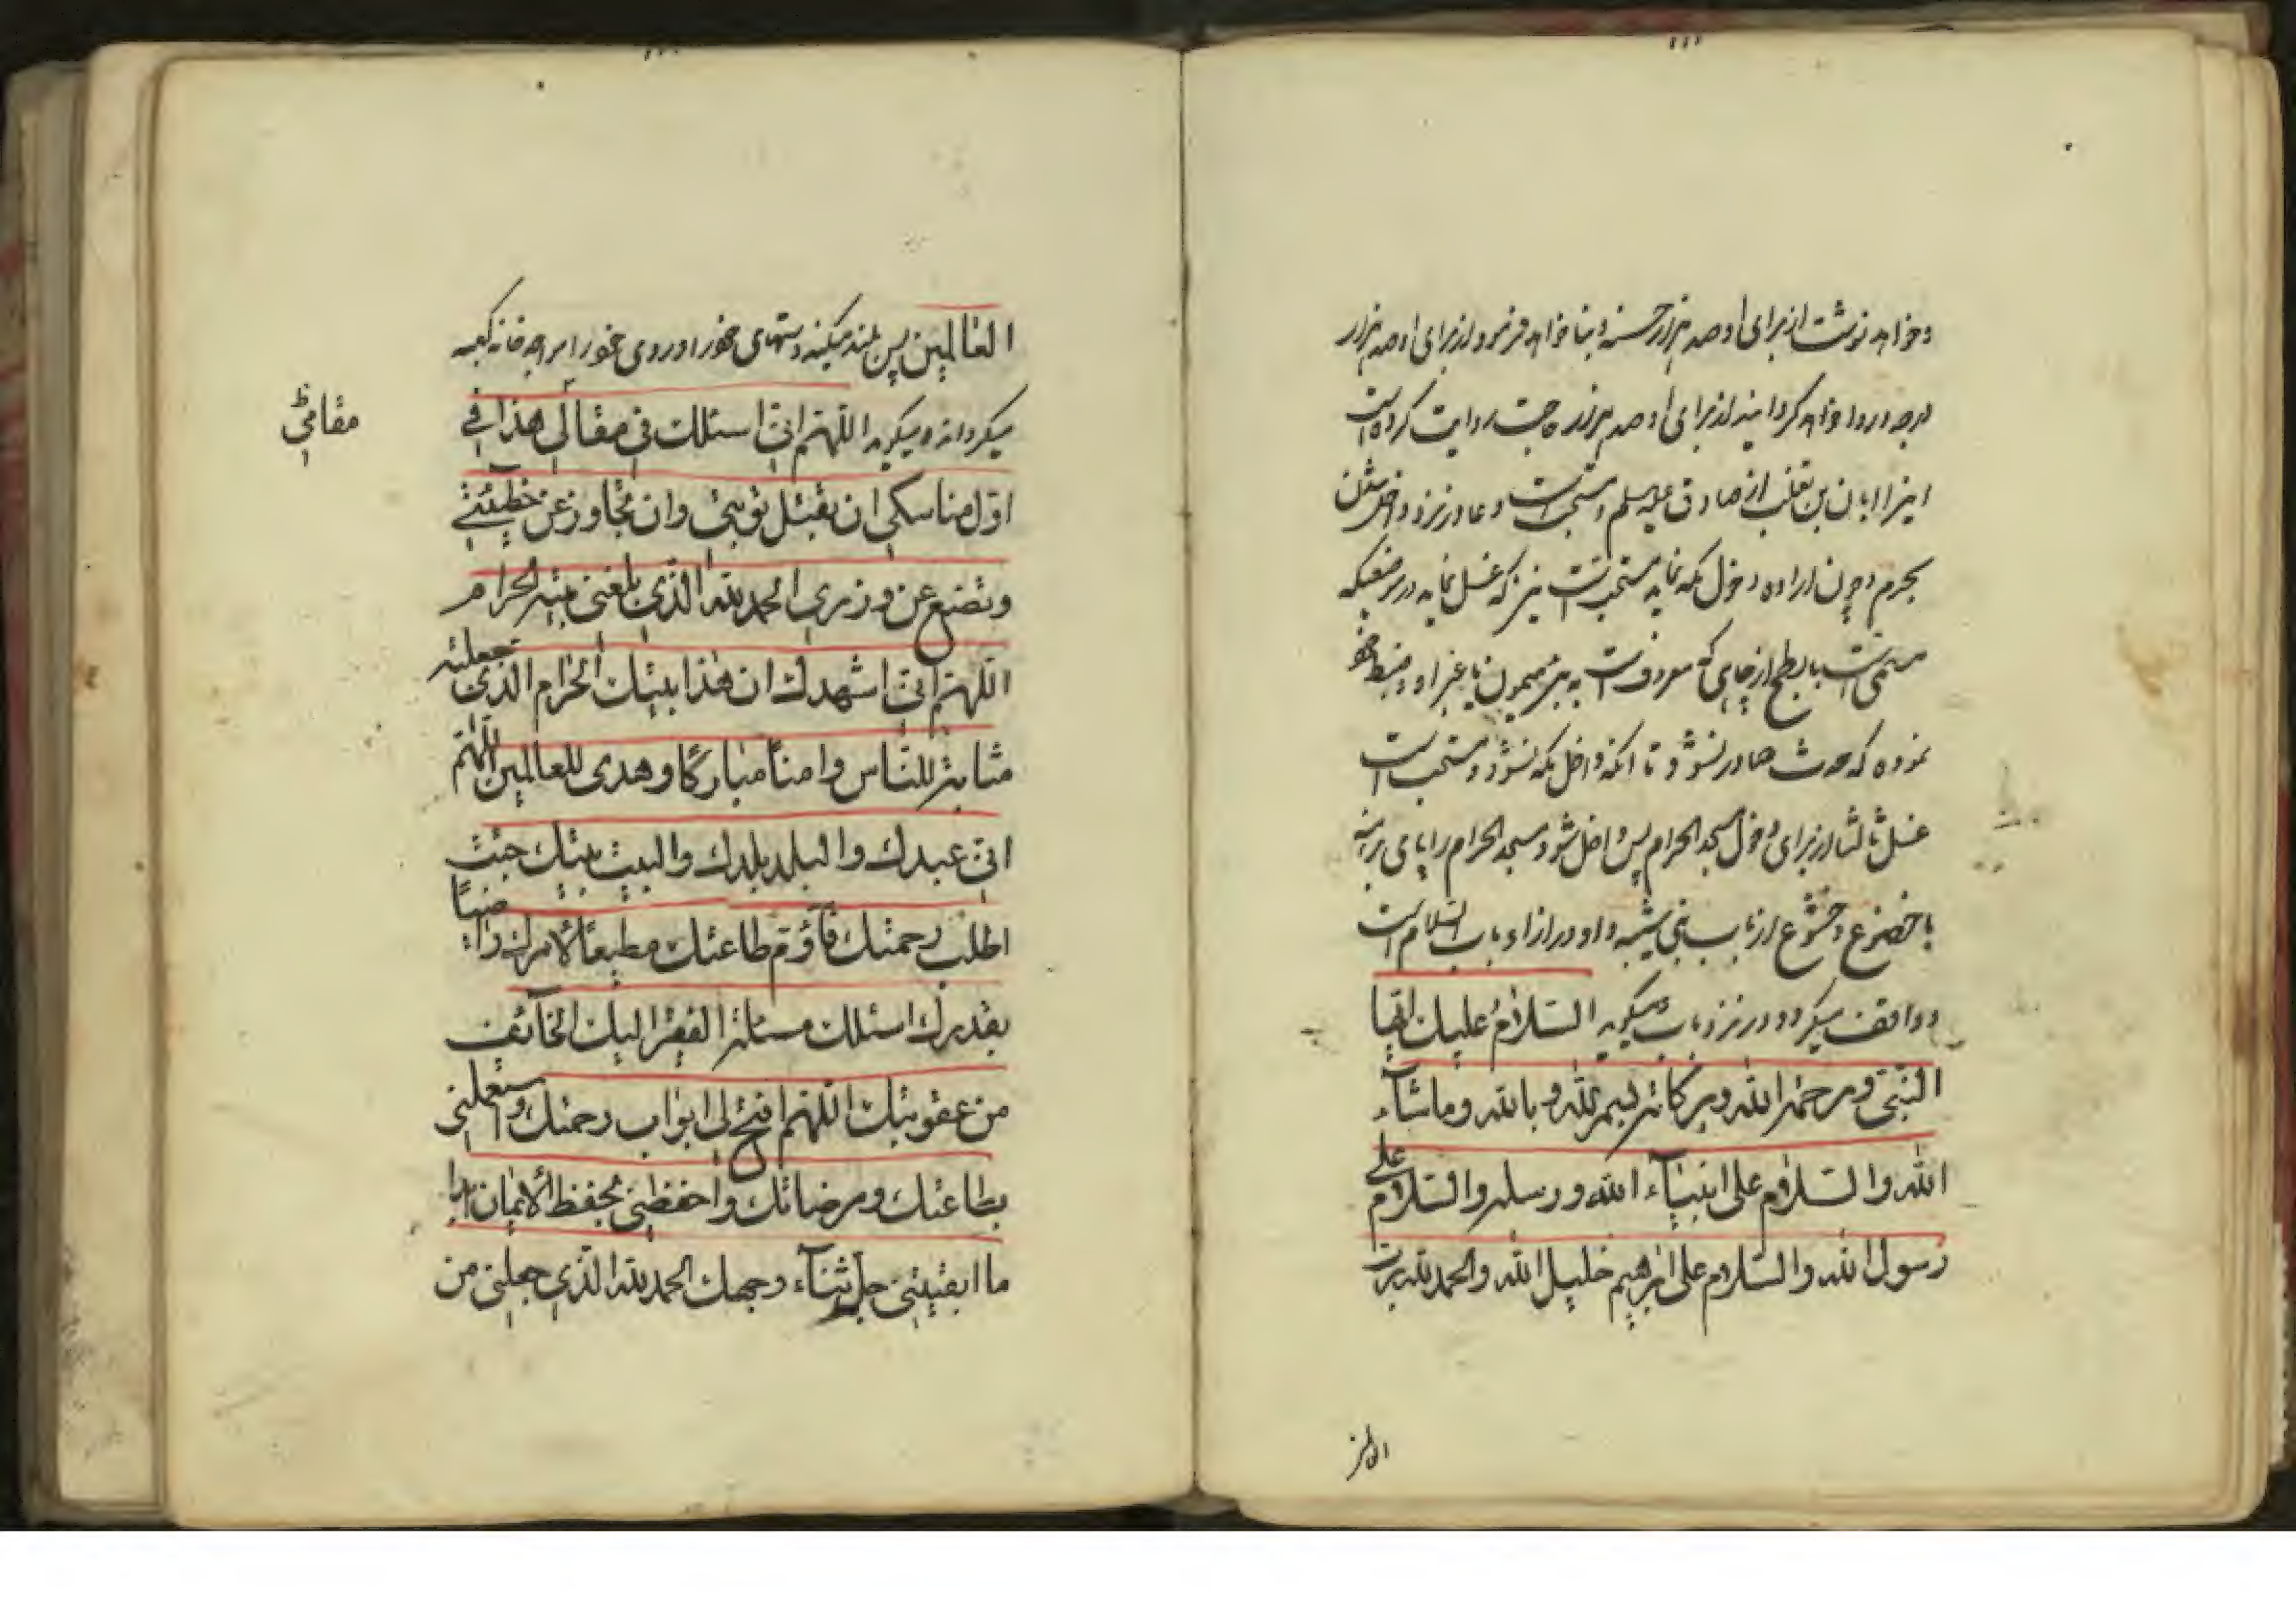 وخواهد نوشت از برای او صد هزار حسنه و بنا خواهد فرمود از برای او صد هزار
درجه و روا خواهد گردانید از برای او صد هزار حاجت روایت کرده است
اینرا ابان بن تغلب از صادق علیه السلم و مستحب است دعا در نزد داخل شدن
بحرم و چون اراده دخول مکه نماید مستحب است نیز که غسل نماید در موضعیکه
مسمی است بابطح از چاهی که معروف است به بئر میمون یا غیر او و ضبط خود
نموده که حدث صادر نشود تا آنکه داخل مکه نشود و مستحب است
غسل ثالثا از برای دخول مسجد الحرام پس داخل شود مسجد الحرام را با پای برهنه
با خضوع و خشوع از باب بنی شیبه و او در ازاء باب السلام است
و واقف میگردد در نزد باب و میگوید السلام علیك ایها
النبی ورحمة الله وبرکاته بسم الله و بالله وما شآء
الله والسلام علی انبیآء الله ورسله والسلام علی
رسول الله والسلام علی ابرهیم خلیل الله والحمد لله رب
العالمین پس بلند میکند دستهای خود را و روی خود را بر وجه خانه کعبه
میگرداند و میگوید اللهم انی اسئلك فی مقالی هذا فی
مقامی
اول مناسکی ان تقبل توبتی وان تجاوز عن خطیئتی
وتضع عن وزری الحمد لله الذی بلغنی بیته الحرام
اللهم انی اشهدك ان هذا بیتك الحرام الذی جعلته
مثابة للناس وامنا مبارکا وهدی للعالمین اللهم
انی عبدك والبلد بلدك والبیت بیتك جئت
اطلب رحمتك فآؤم طاعتك مطیعا لامرك راضیا
بقدرك اسئلك مسئلة الفقیر الیك الخآئف
من عقوبتك اللهم افتح لی ابواب رحمتك واستعملنی
بطاعتك ومرضاتك واحفظنی بحفظ الایمان ابدا
ما ابقیتنی جل ثنآء وجهك الحمد لله الذی جعلنی من